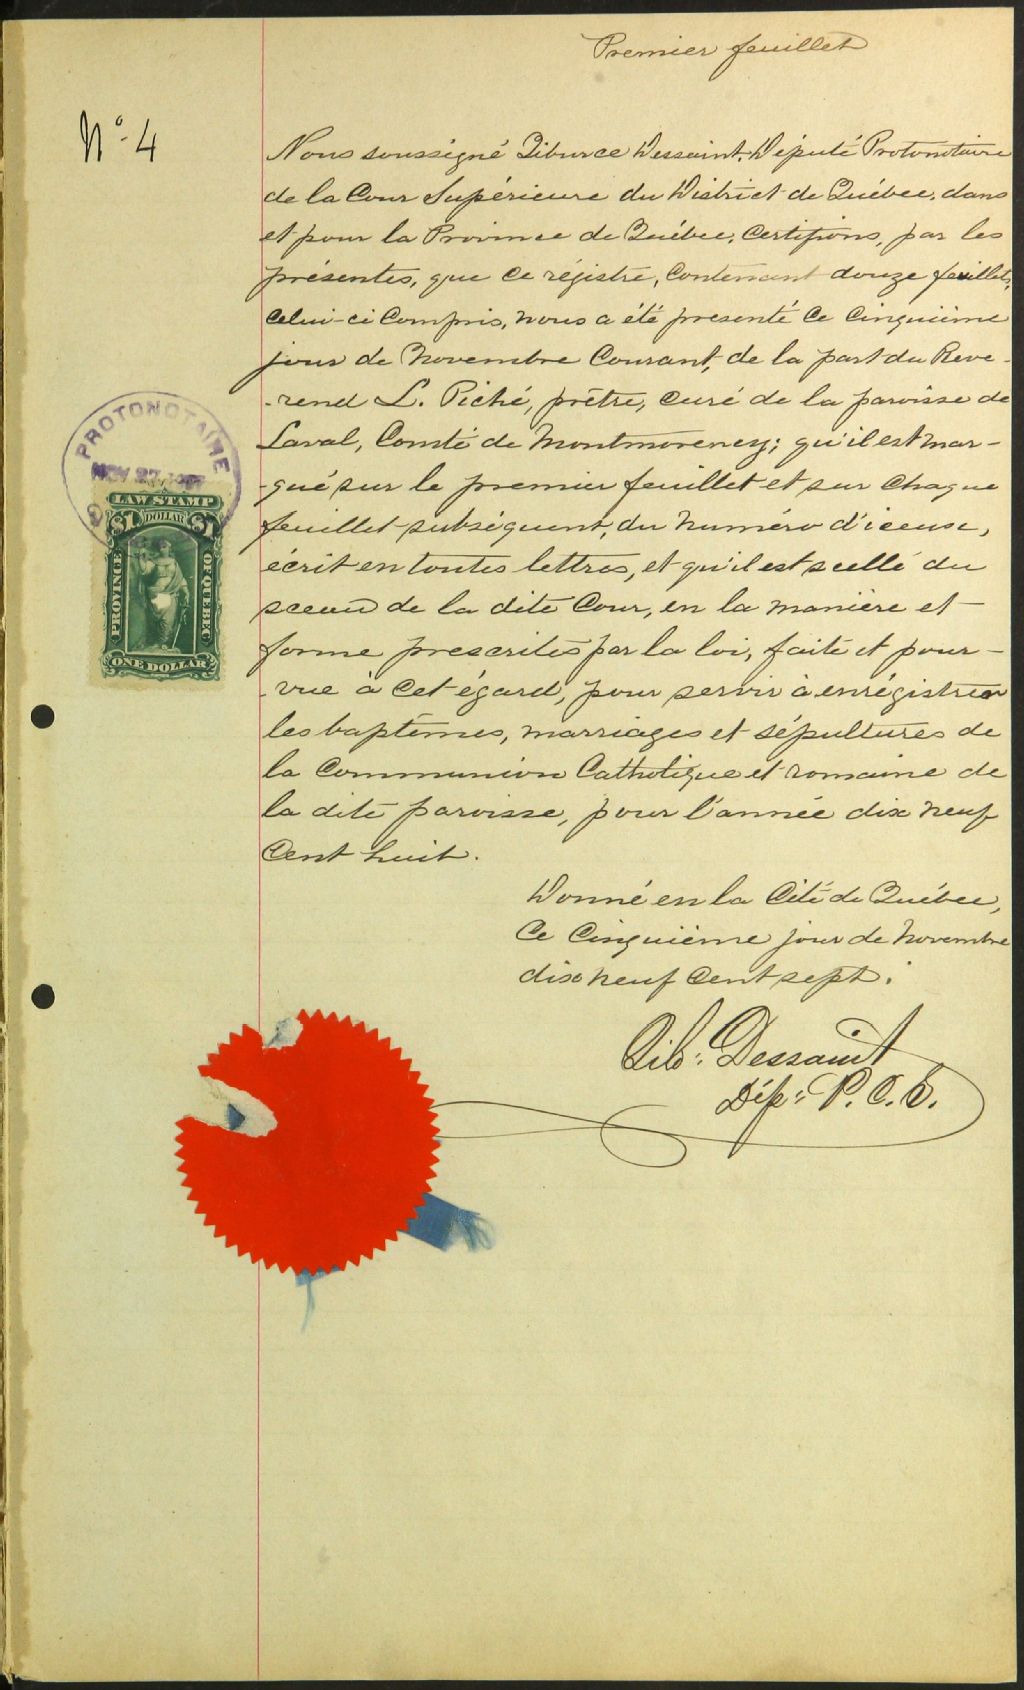 Premier feuillet
N° 4
Nous soussigné Tiburce Dessaint, Député Protonotaire
de la Cour Supérieure du District de Québec, dans
et pour la Province de Québec, certifions, par les
présentes, que ce régistre, contenant douze feuillets,
celui-ci compris, nous a été présenté ce cinquième
jour de Novembre courant, de la part du Reve-
-rend L. Piché, prêtre, curé de la paroisse de
Laval, Comté de Montmorency; qu'il est mar-
-qué sur le premier feuillet et sur chaque
feuillet subséquent, du numéro d'iceux,
écrit en toutes lettres, et qu'il est scellé du
sceau de la dite Cour, en la manière et
forme prescrites par la loi, faite et pour-
-vue à cet égard, pour servir à enrégistrer
les baptêmes, marriages et sépultures de
la Communion Catholique et romaine de
la dite paroisse, pour l'année dix neuf
cent huit.
Donné en la Cité de Québec,
ce cinquième jour de Novembre
dix neuf cent sept.
Tib: Dessaint
Dép: P. C. S.
PROTONOTAIRE
NOV 27
LAW STAMP
$1 DOLLAR $1
PROVINCE OF QUEBEC
ONE DOLLAR